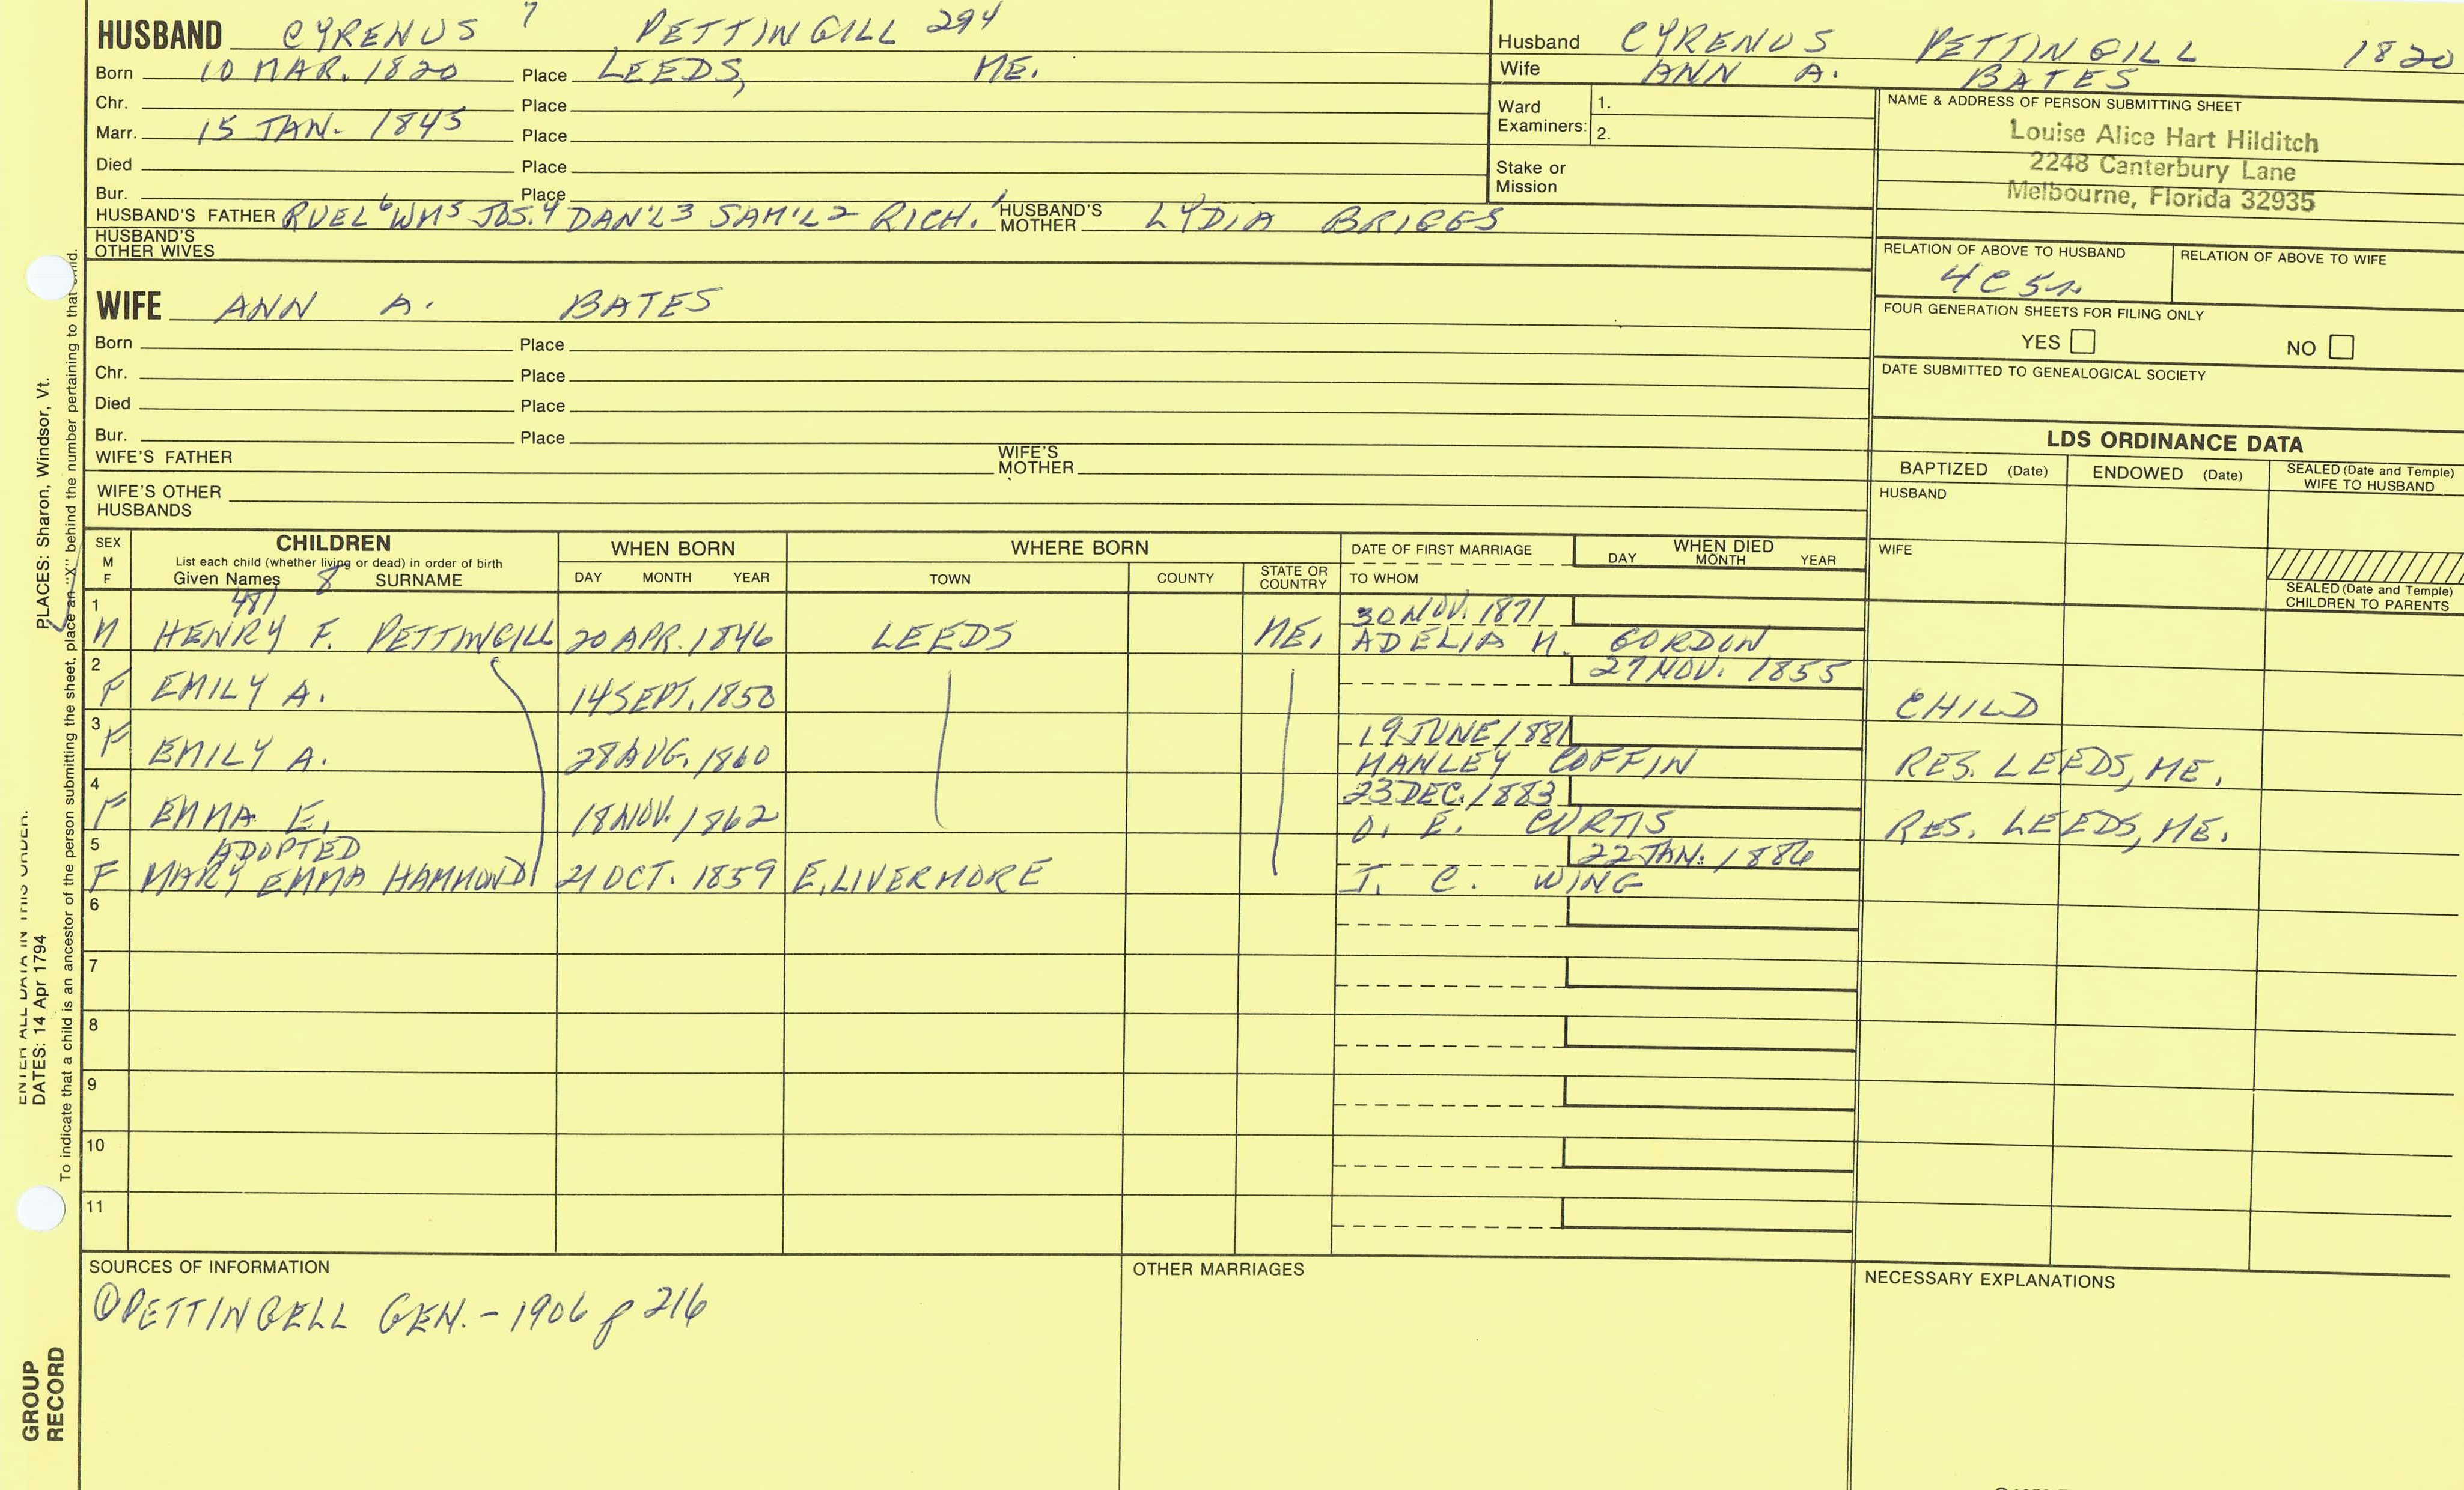 HUSBAND CYRENUS 7 PETTINGILL 294
Born 10 MAR. 1820 Place LEEDS, ME.
Chr. Place
Marr. 15 JAN. 1845 Place
Died Place
Bur. Place
HUSBAND'S FATHER RUEL 6 WM 5 JOS. 4 DAN'L 3 SAM'L 2 RICH. 1 HUSBAND'S MOTHER LYDIA BRIGGS
HUSBAND'S OTHER WIVES
Husband CYRENUS PETTINGILL 1820
Wife ANN A. BATES
Ward Examiners: 1.
2.
Stake or Mission
NAME & ADDRESS OF PERSON SUBMITTING SHEET
Louise Alice Hart Hilditch
2248 Canterbury Lane
Melbourne, Florida 32935
RELATION OF ABOVE TO HUSBAND RELATION OF ABOVE TO WIFE
4C5r
FOUR GENERATION SHEETS FOR FILING ONLY
YES NO
DATE SUBMITTED TO GENEALOGICAL SOCIETY
WIFE ANN A. BATES
Born Place
Chr. Place
Died Place
Bur. Place
WIFE'S FATHER WIFE'S MOTHER
WIFE'S OTHER HUSBANDS
LDS ORDINANCE DATA
BAPTIZED (Date) ENDOWED (Date) SEALED (Date and Temple) WIFE TO HUSBAND
HUSBAND
WIFE
SEALED (Date and Temple) CHILDREN TO PARENTS
SEX M F
CHILDREN
List each child (whether living or dead) in order of birth
Given Names 8 SURNAME
WHEN BORN
DAY MONTH YEAR
WHERE BORN
TOWN COUNTY STATE OR COUNTRY
DATE OF FIRST MARRIAGE
TO WHOM
WHEN DIED
DAY MONTH YEAR
1 481 30 NOV. 1871
M HENRY F. PETTINGILL 20 APR. 1846 LEEDS ME. ADELIA M. GORDON
2 27 NOV. 1855
F EMILY A. 14 SEPT. 1850 CHILD
3 19 JUNE 1881
F EMILY A. 28 AUG. 1860 MANLEY COFFIN RES. LEEDS, ME.
4 23 DEC. 1883
F EMMA E. 18 NOV. 1862 O. E. CURTIS RES. LEEDS, ME.
5 ADOPTED 22 JAN. 1886
F MARY EMMA HAMMOND 21 OCT. 1859 E. LIVERMORE J. C. WING
6
7
8
9
10
11
SOURCES OF INFORMATION
① PETTINGELL GEN. - 1906 p 216
OTHER MARRIAGES
NECESSARY EXPLANATIONS
ENTER ALL DATA IN THIS ORDER:
DATES: 14 Apr 1794 PLACES: Sharon, Windsor, Vt.
To indicate that a child is an ancestor of the person submitting the sheet, place an "X" behind the number pertaining to that child.
GROUP RECORD